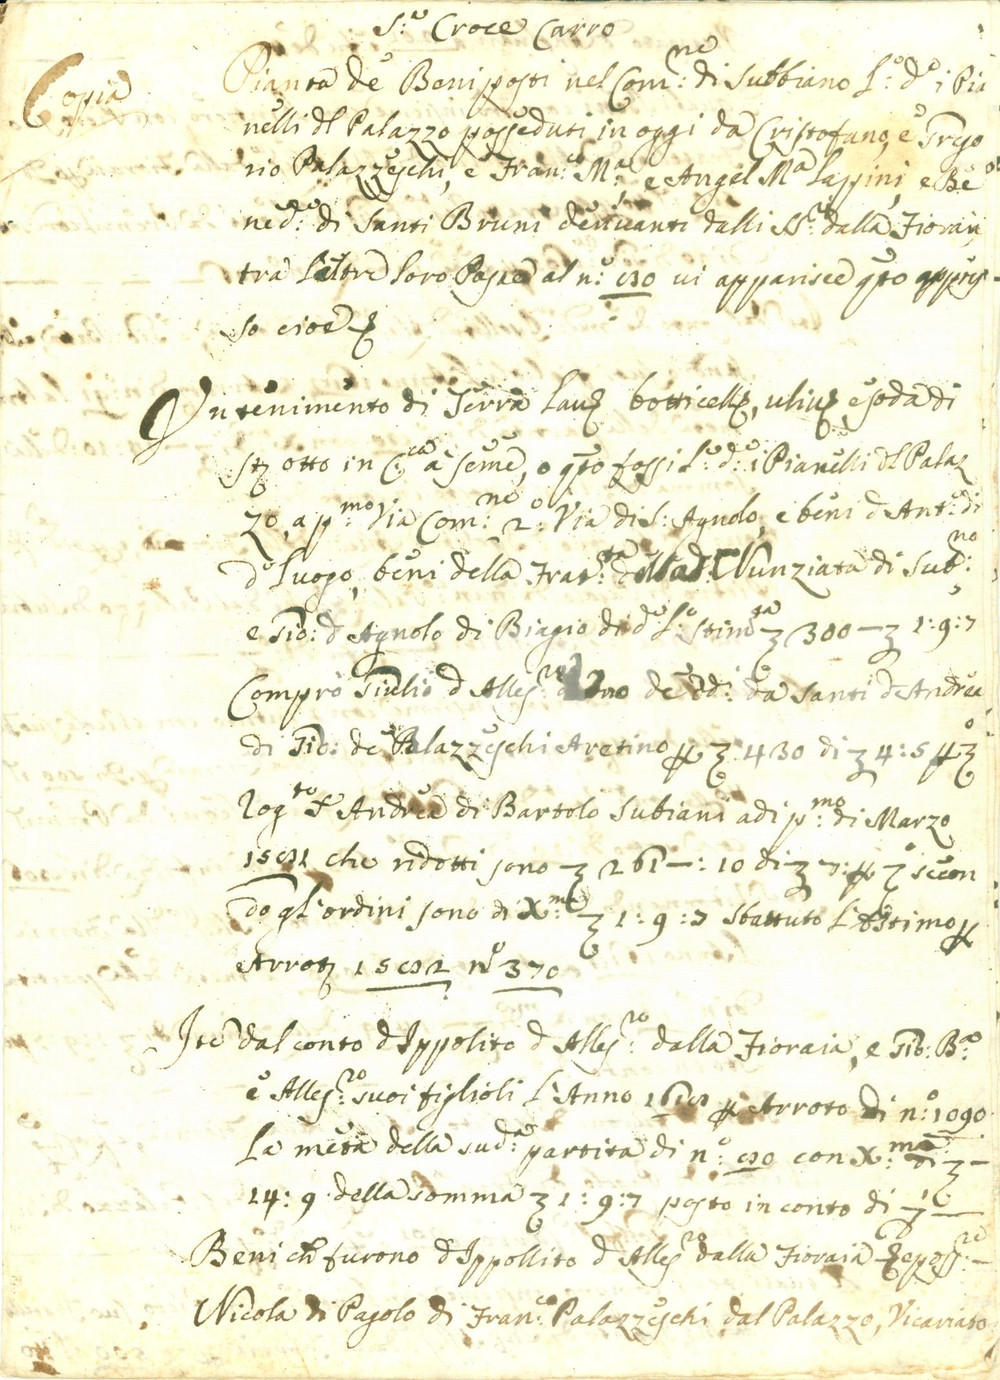 S.ta Croce Carro
Copia
Pianta de Beni posti nel Com:ne di Subbiano L:o d:o i Pia
nelli dl Palazzo posseduti in oggi da Cristofano, e Grego
rio Palazzeschi, e Fran:co M:a, e Angel M:a Lappini, e Be
ned:o di Santi Bruni derivanti dalli SS:ri dalla Fiorai
tra l'altre loro Poste al n:o 90 vi apparisce qto appres
so cioè
Un tenimento di Terra Lau: botticell:, uliu:, e soda di
st: otto in C:ca a seme, o qto fossi L:o d:o i Pianelli dl Palaz
zo, a p:mo Via Com:ne 2:o Via di S: Agnolo, e beni d Ant:o di
d:o Luogo, beni della Frat:ta della Nunziata di Sub:no
e Gio: d Agnolo di Biagio di d:o L:o stim:ta 300 — 1:9:7
Comprò Giulio d Alless:ro da Santi d Andrea
di Gio: de Palazzeschi Aretino p 430 di 4:5 p
Rog:to S Andrea di Bartolo Subiani adi p:mo di Marzo
1591 che ridotti sono 261—:10 di 7: p secon
do gl'ordini sono di X:ma 1:9:7 sbattuto l'Estimo p
Arrot: 1592 n:o 370
Ite dal conto d Ippolito d Alles:ro dalla Fioraia, e Gio: B:a
e Alles:ro suoi figlioli l'Anno p Arroto di n:o 1090
La metà della sud:a partita di n:o 90 con X:ma di —
14:9 della somma 1:9:7 posto in conto di —
Beni ch furono d Ippollito d Alles:ro dalla Fioraia
Nicola di Pagolo di Fran:co Palazzeschi dal Palazzo, Vicariato